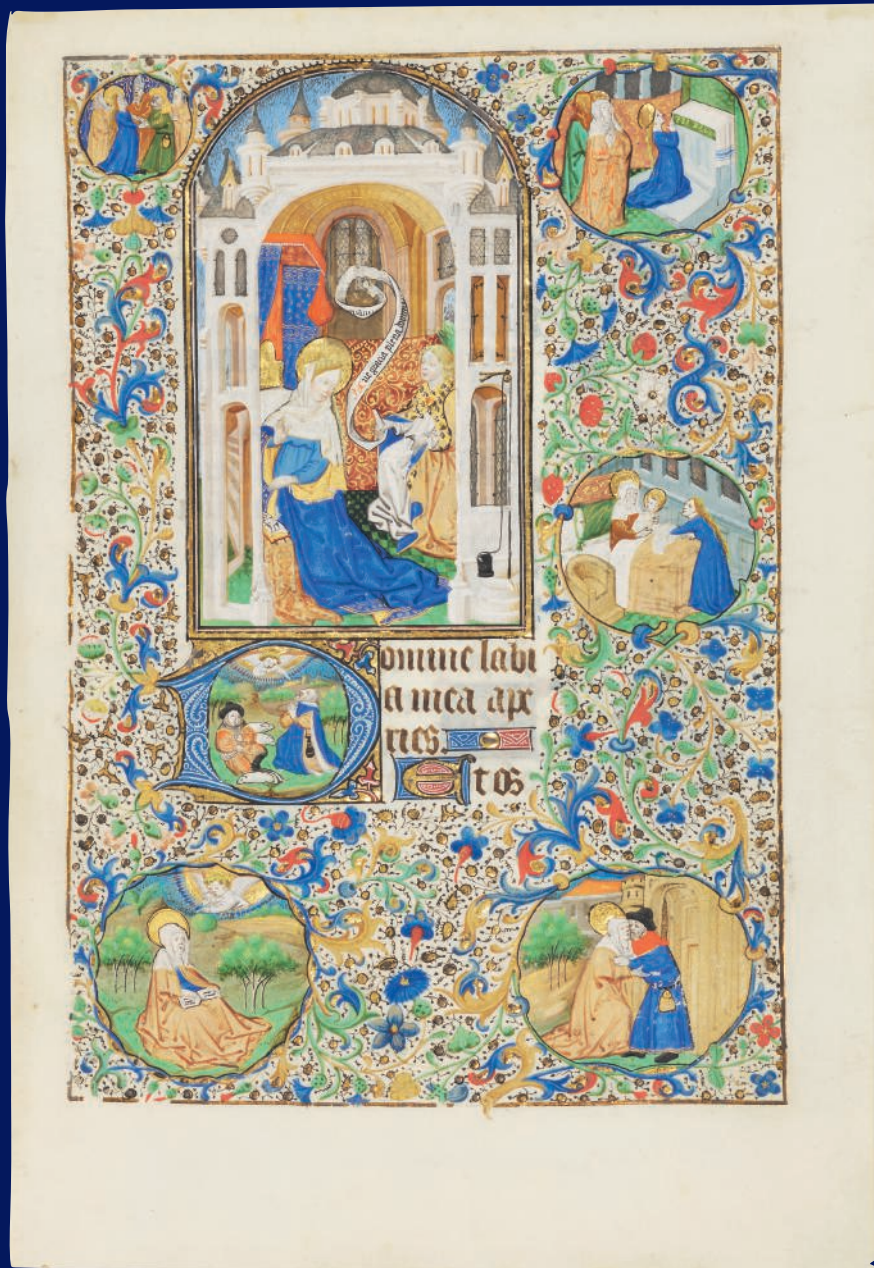 Aue gracia plena
Domine labi
a mea ape
ries.
Et os